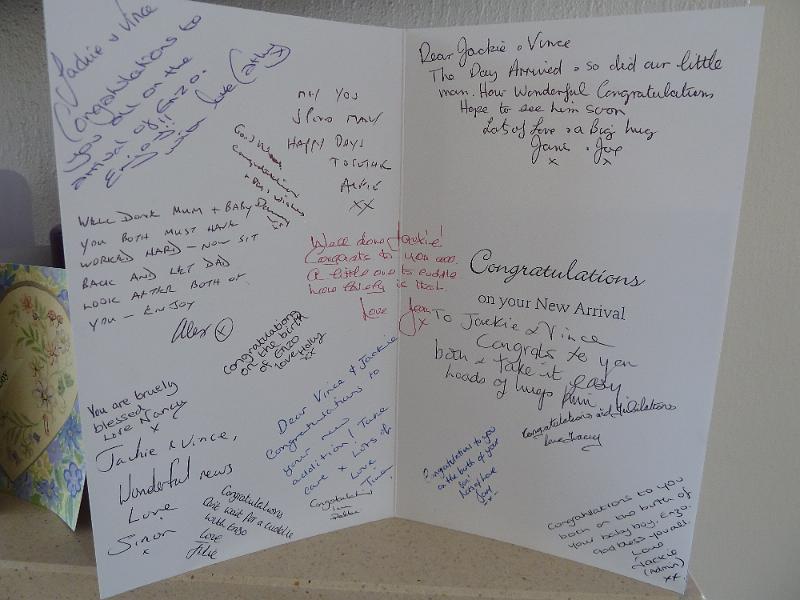 Jackie & Vince
Congratulations to
you all on the
arrival of Enzo.
Enjoy!!
with love Cathy
May You
Share Many
Happy Days
Together
Alfie
XX
Good
Congratulations
Well Done Mum + Baby
You Both Must Have
Worked Hard – Now Sit
Back And Let Dad
Look After Both of
You – Enjoy
Alex X
Well done Jackie!
Congrats to you all.
A little one to cuddle
how lovely is that.
Love Jean
x
Congratulations
on the birth
of Enzo
love Holly
xx
You are truely
blessed
Love Nancy
x
Jackie & Vince,
Wonderful news
Love
Simon
x
Congratulations
Can't wait for a cuddle
with Enzo
Love
Dear Vince & Jackie
Congratulations to
your new
addition! Take
care & lots of
Love
Congratulations
Dear Jackie & Vince
The Day Arrived & so did our little
man. How Wonderful Congratulations
Hope to see him soon
Lots of Love & a Big hug
Jane & Joe
x x
Congratulations
on your New Arrival
To Jackie & Vince
Congrats to you
both & take it easy
heads of hugs Kim
Congratulations and Jubilations
love Tracy
Congratulations to you
on the birth of your
son
love
Congratulations to you
both on the birth of
your baby boy, Enzo.
God bless you all.
Love
Jackie
(Admin)
xx